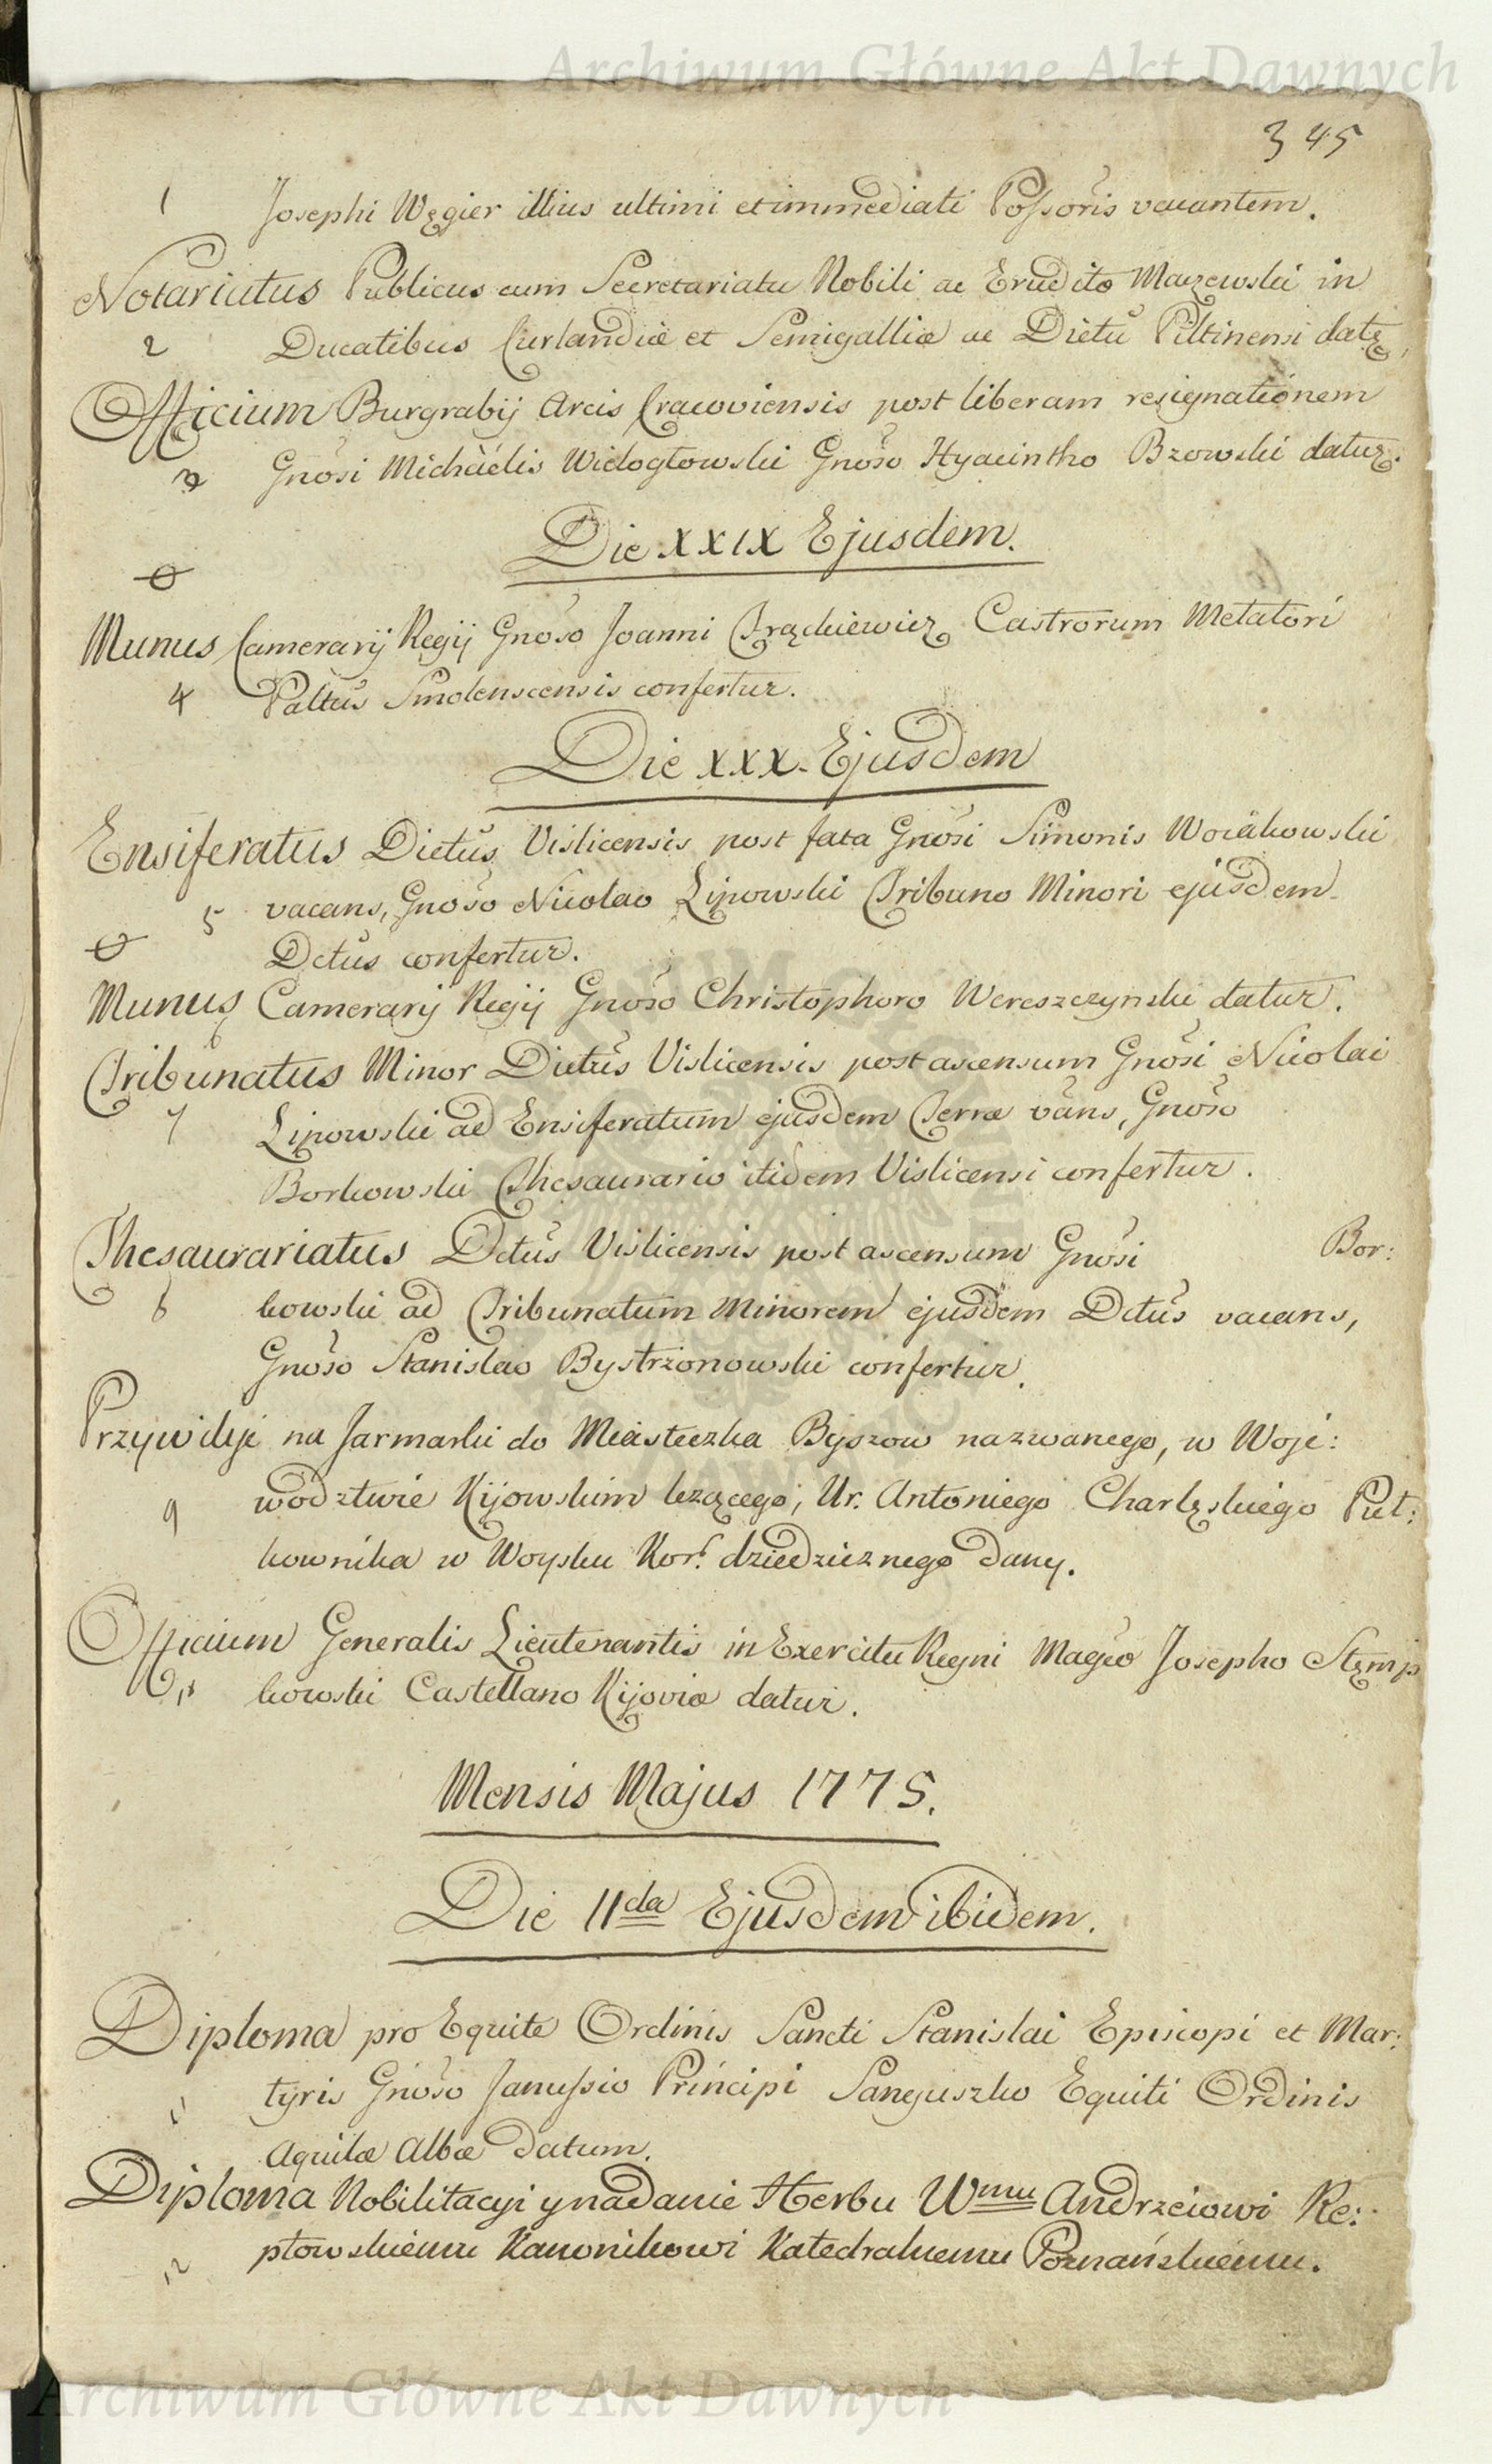 Archiwum Główne Akt Dawnych
345
1 Josephi Węgier illius ultimi et immediati Possoris vacantem.
Notariatus Publicus cum Secretariatu Nobili ac Erudito Maczewski in
2 Ducatibus Curlandiæ et Semigalliæ ac Dictu Piltinensi datr
Officium Burgrabij Arcis Cracoviensis post liberam resignationem
3 Gnosi Michaëlis Wielogłowski Gnoso Hyacintho Bzowski datur.
Die XXIX Ejusdem.
Munus Camerarij Regij Gnoso Joanni Trąckiewicz Castrorum Metatori
4 Paltus Smolenscensis confertur.
Die XXX. Ejusdem
Ensiferatus Dictus Vislicensis post fata Gnosi Simonis Woiakowski
5 vacans, Gnoso Nicolao Lipowski Tribuno Minori ejusdem
Dctus confertur.
Munus Camerarij Regij Gnoso Christophoro Wereszczynski datur.
6
Tribunatus Minor Dictus Vislicensis post ascensum Gnosi Nicolai
7 Lipowski ad Ensiferatum ejusdem Terræ vans, Gnoso
Borkowski Thesaurario itidem Vislicensi confertur.
Thesaurariatus Dctus Vislicensis post ascensum Gnosi Bor:
8 kowski ad Tribunatum Minorem ejusdem Dctus vacans,
Gnoso Stanislao Bystrzonowski confertur.
Przywiley na Jarmarki do Miasteczka Byszow nazwanego, w Woje:
9 wodztwie Kijowskim leżącego, Ur. Antoniego Charlęskiego Puł:
kownika w Woysku Kor. dziedzicznego dany.
Officium Generalis Lieutenantis in Exercitu Regni Magco Josepho Stęmp
10 kowski Castellano Kijoviæ datur.
Mensis Majus 1775.
Die IIda Ejusdem ibidem.
Diploma pro Equite Ordinis Sancti Stanislai Episcopi et Mar:
11 tyris Gnoso Janussio Principi Sanguszko Equiti Ordinis
Aquilæ Albæ datum.
Diploma Nobilitacyi y nadanie Herbu Wmu Andrzeiowi Re:
12 ptowskiemu Kanonikowi Katedralnemu Poznańskiemu.
Archiwum Główne Akt Dawnych